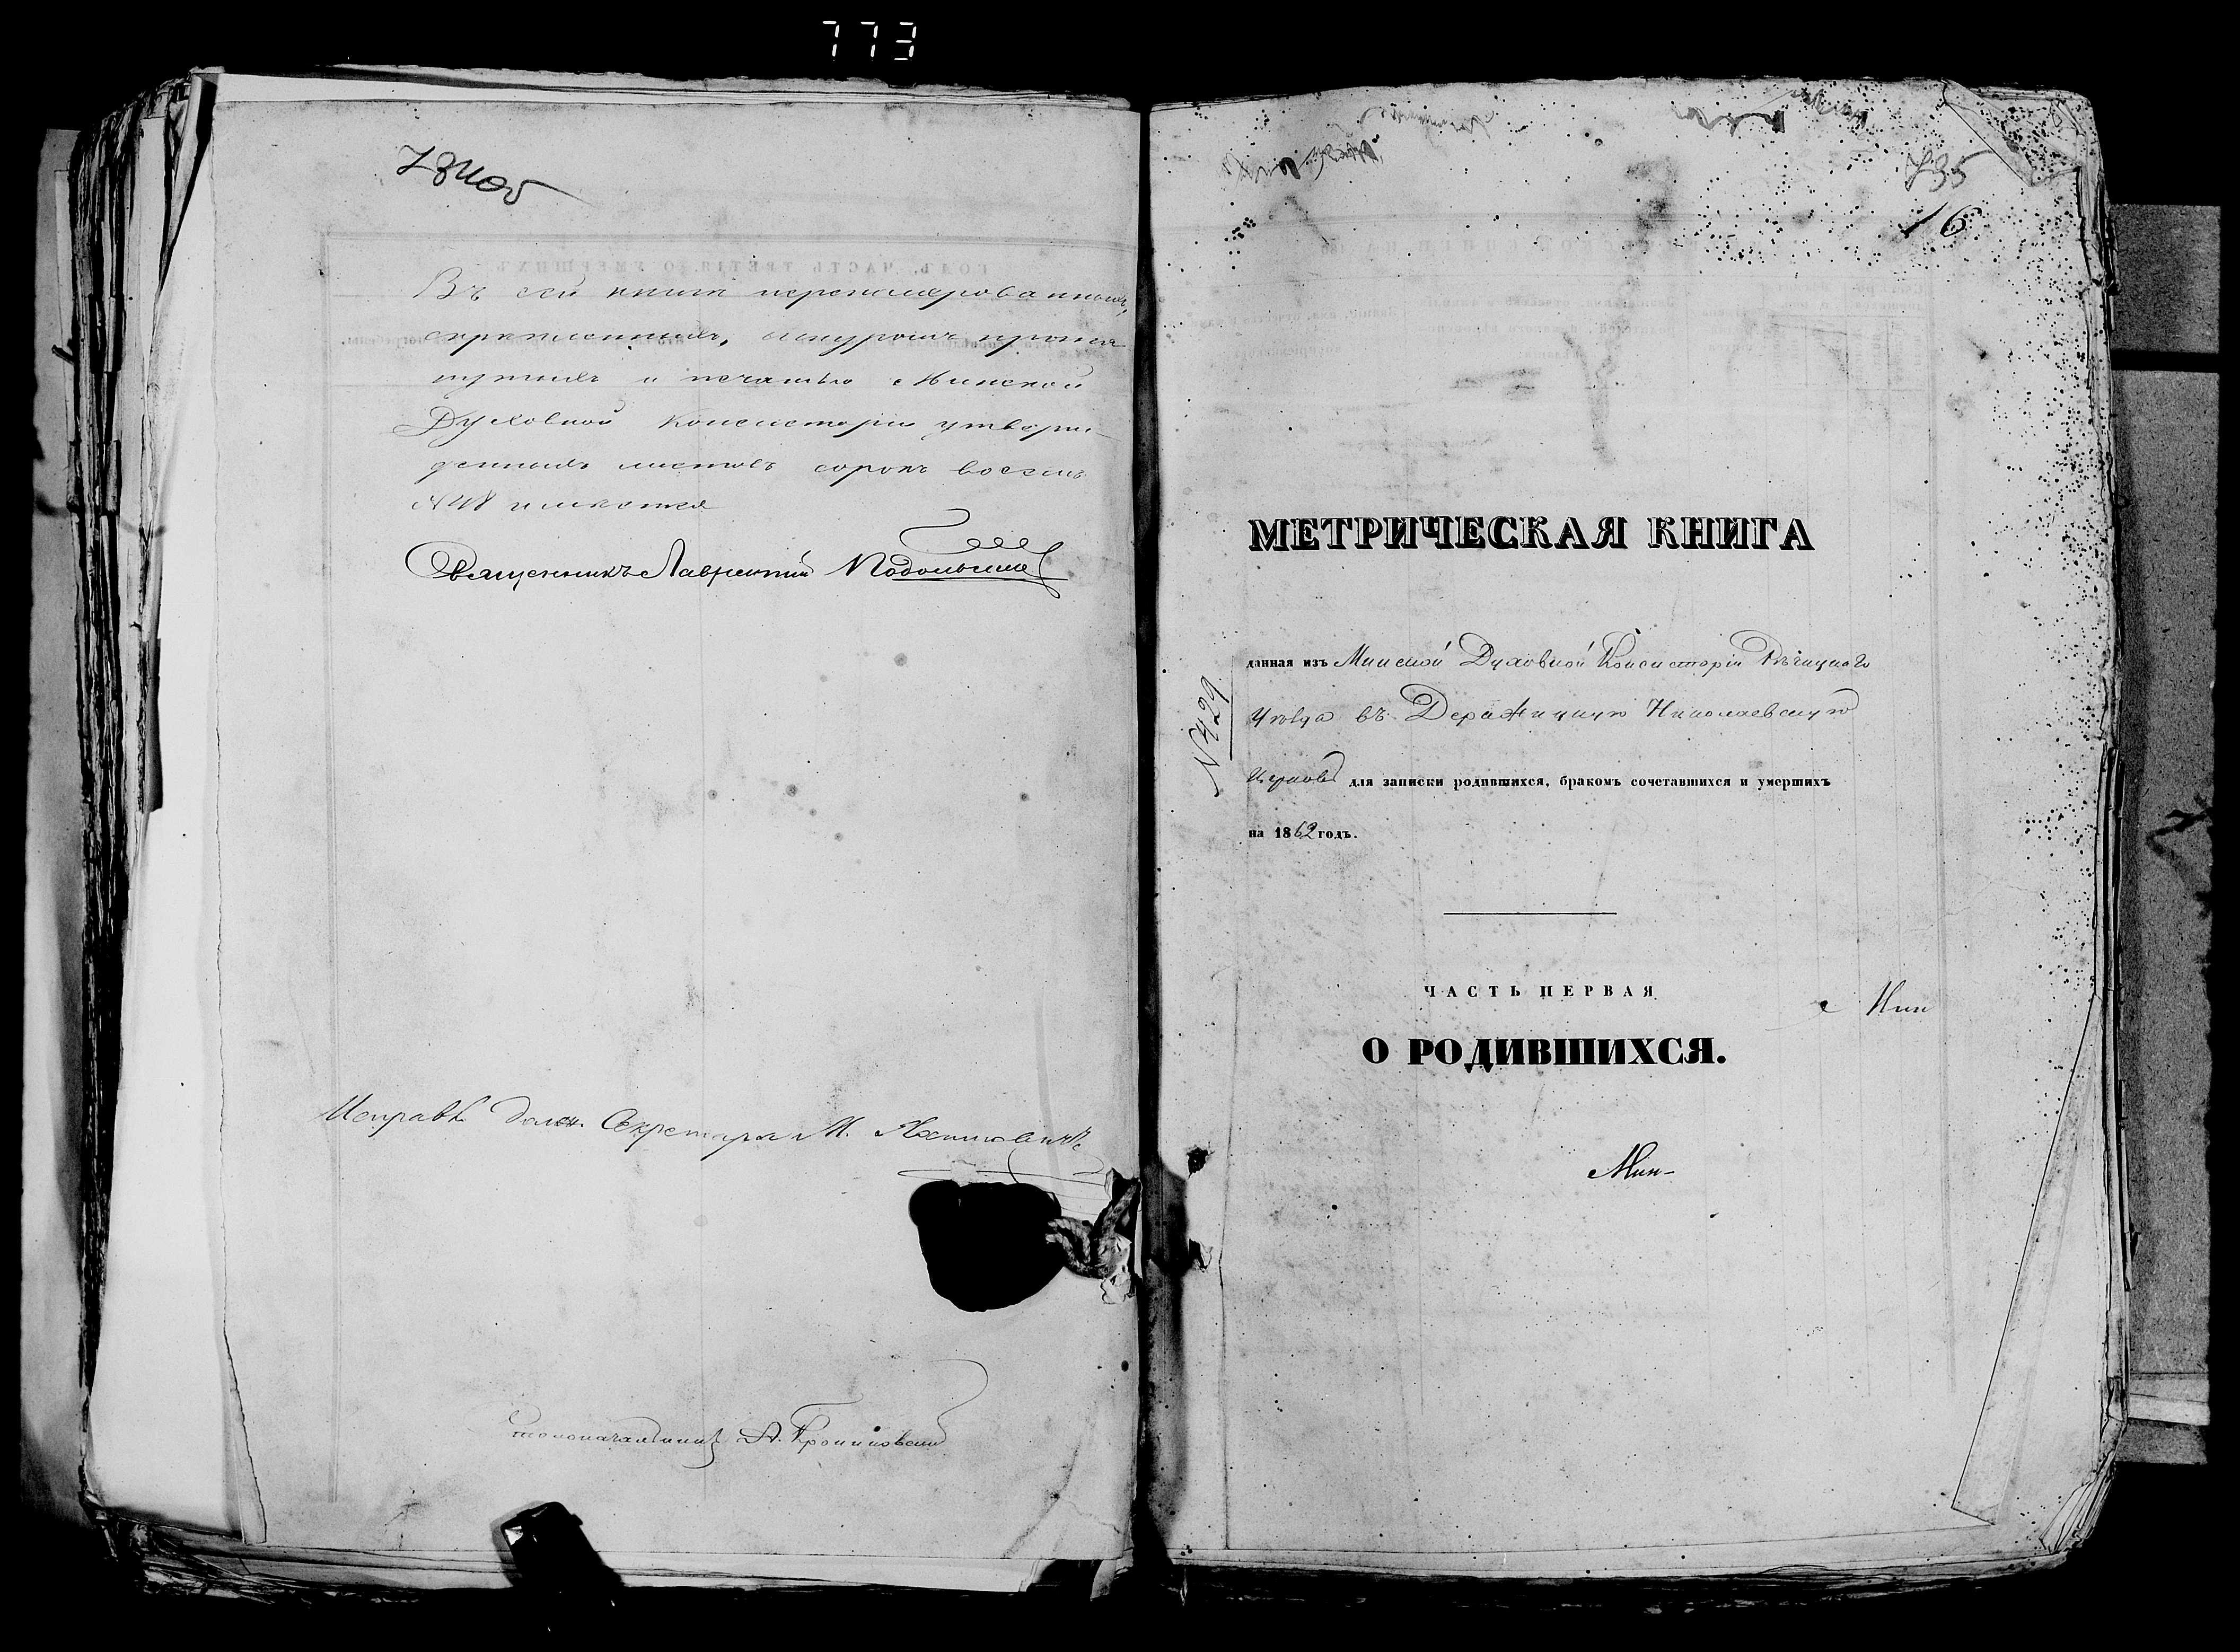 773
Въ сей книгѣ перенумерованныхъ,
скрѣпленныхъ, шнуромъ протя
нутыхъ и печатью Минской
Духовной Консисторіи утверж-
денныхъ листовъ сорокъ восемь
№ 48 имѣется
Священникъ Лаврентій Подольскій
Исправл. долж. Секретаря М.
Столоначальникъ А.
735
16
МЕТРИЧЕСКАЯ КНИГА
№ 429
данная изъ Минской Духовной Консисторіи Рѣчицкаго
Уѣзда въ Деражицкую Николаевскую
Церковь для записки родившихся, бракомъ сочетавшихся и умершихъ
на 1862 годъ.
ЧАСТЬ ПЕРВАЯ
О РОДИВШИХСЯ.
Мин-